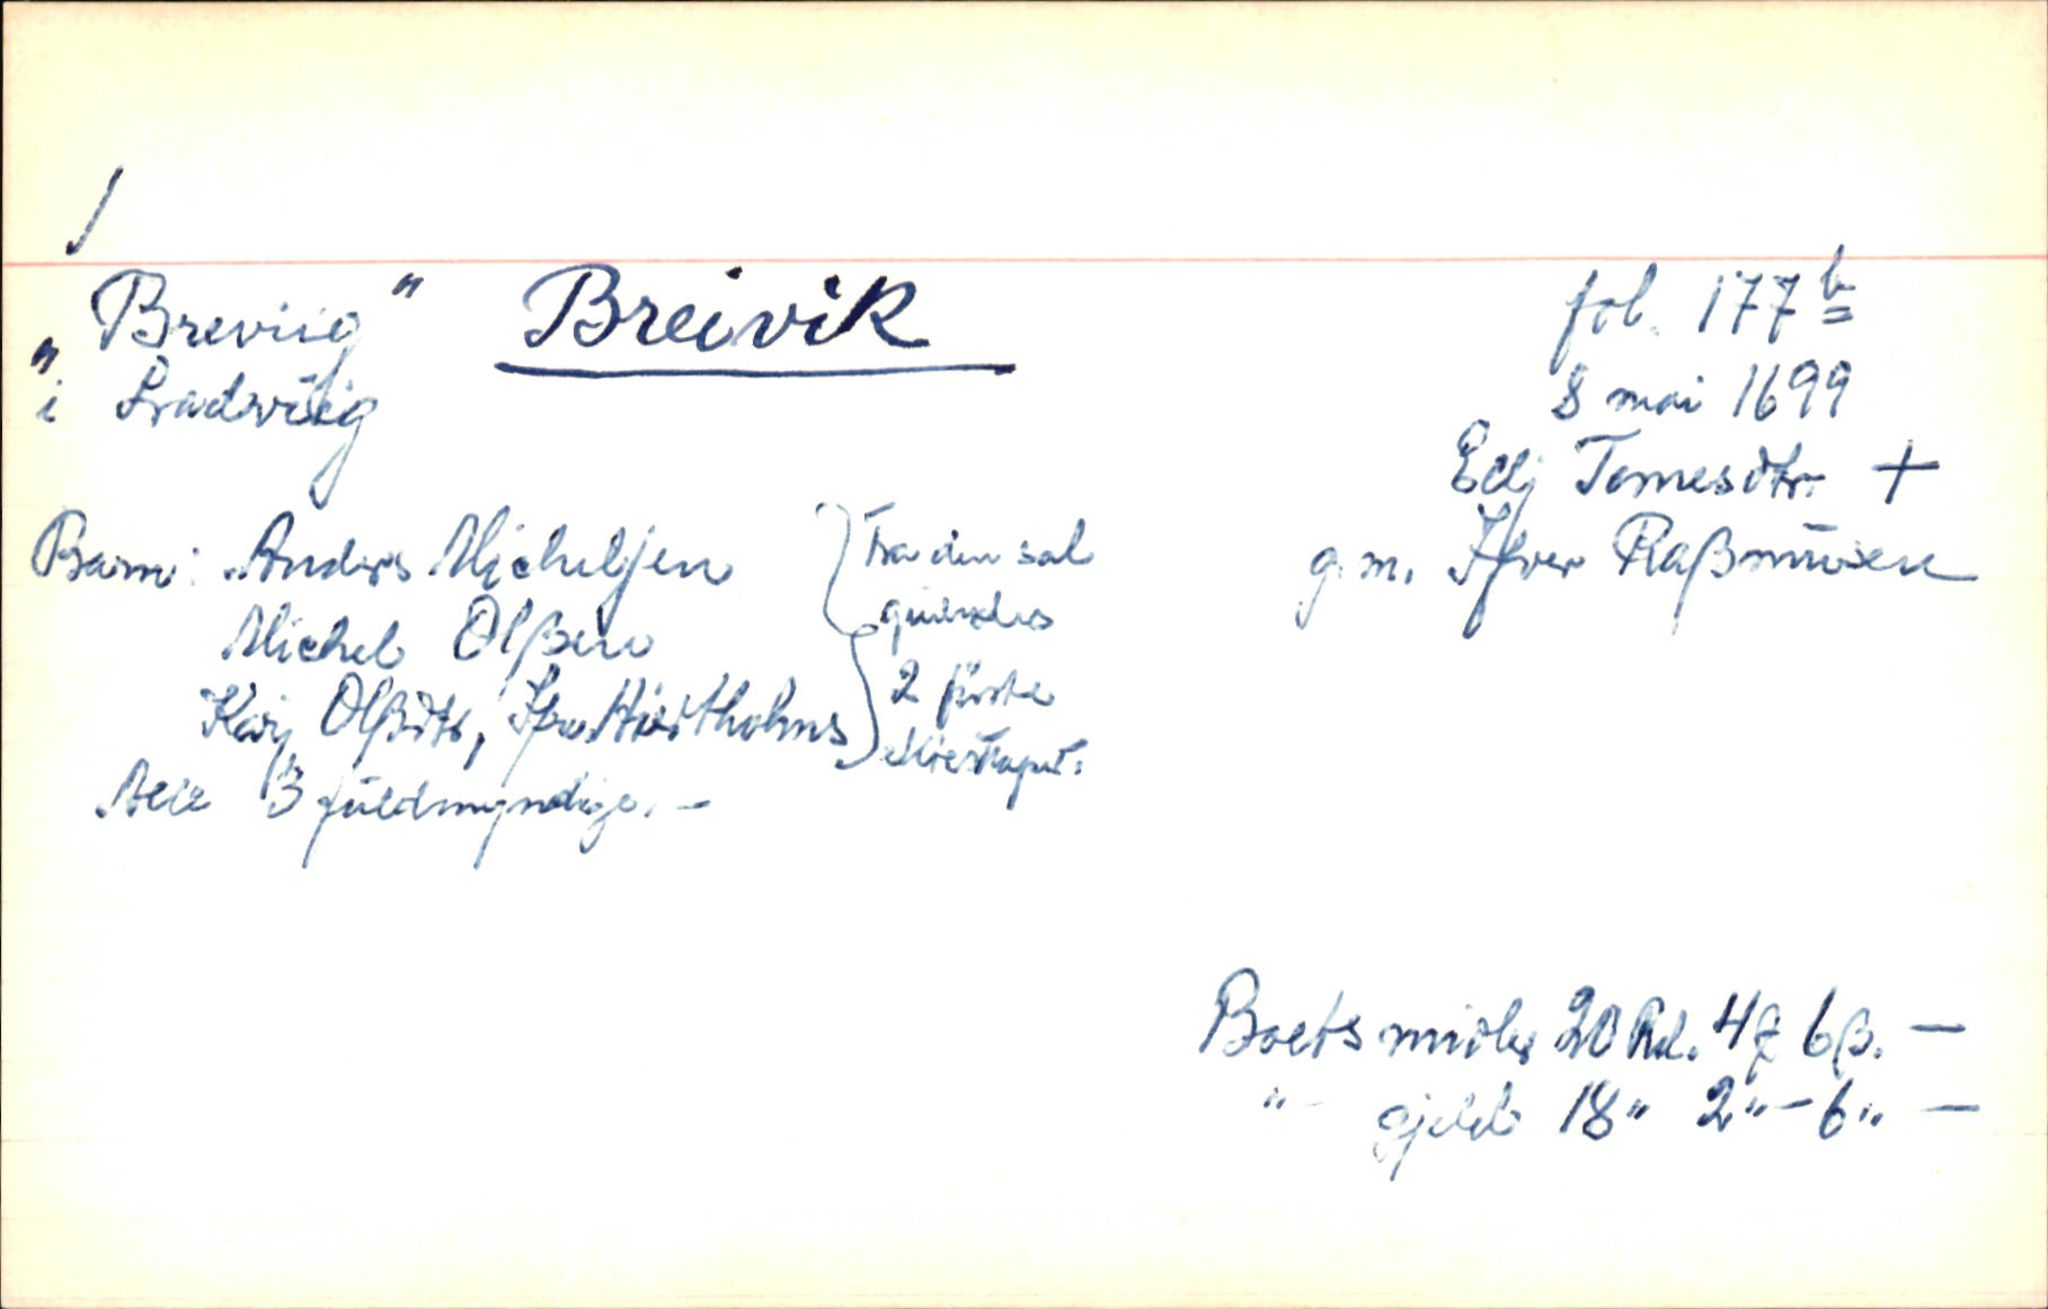 "Breviig" Breivik
fol. 177 b
"i Sradviig
8 mai 1699
Elj Tomesdtr. +
g. m. Ifver Raßmusen
Barn: Anders Micheljen
Michel Olßen
Kari Olßdtr,
Alle 3 fuldmyndige. -
Fra den sal
quindes
2 første
ekteskaper.
Boets midler 20 Rd. 4 ʒ 6 ß. -
" - gjeld 18 " 2 " - 6 " -